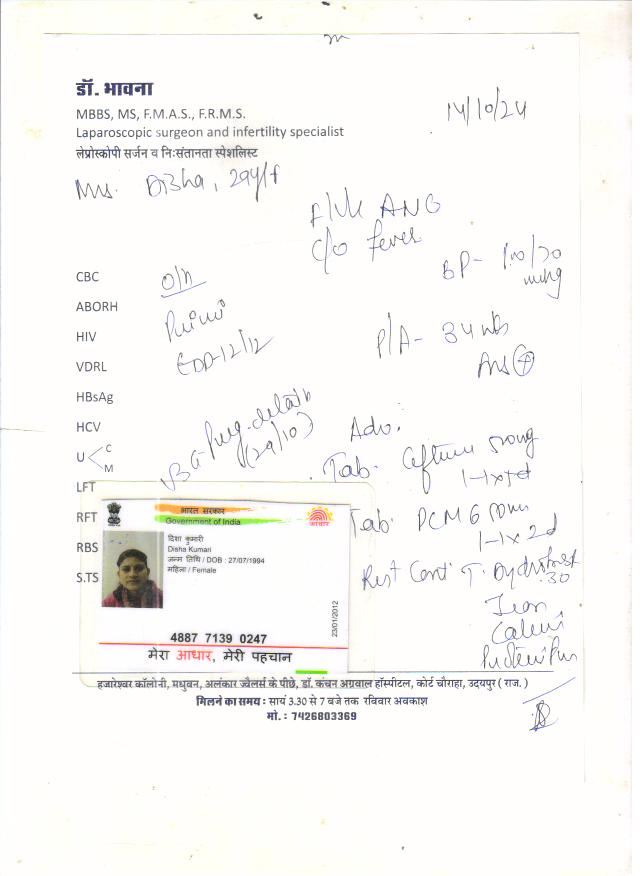 डॉ. भावना
MBBS, MS, F.M.A.S., F.R.M.S.
Laparoscopic surgeon and infertility specialist
लेप्रोस्कोपी सर्जन व निःसंतानता स्पेशलिस्ट
14/10/24
Disha, 29y/f
ANC
c/o fever
BP- 100/70
CBC
O/h
ABORH
HIV
EDD-12/12
P/A- 34 wks
VDRL
HBsAg
HCV
(29/10)
Adv.
U < C
M
Tab.
LFT
RFT
Tab. PCM 650mg
1-1x2d
RBS
S.TS
Rest Cont
30
Iron
भारत सरकार
Government of India
आधार
दिशा कुमारी
Disha Kumari
जन्म तिथि / DOB : 27/07/1994
महिला / Female
23/01/2012
4887 7139 0247
मेरा आधार, मेरी पहचान
हजारेश्वर कॉलोनी, मधुवन, अलंकार ज्वैलर्स के पीछे, डॉ. कंचन अग्रवाल हॉस्पीटल, कोर्ट चौराहा, उदयपुर ( राज. )
मिलने का समय : सायं 3.30 से 7 बजे तक रविवार अवकाश
मो. : 7426803369